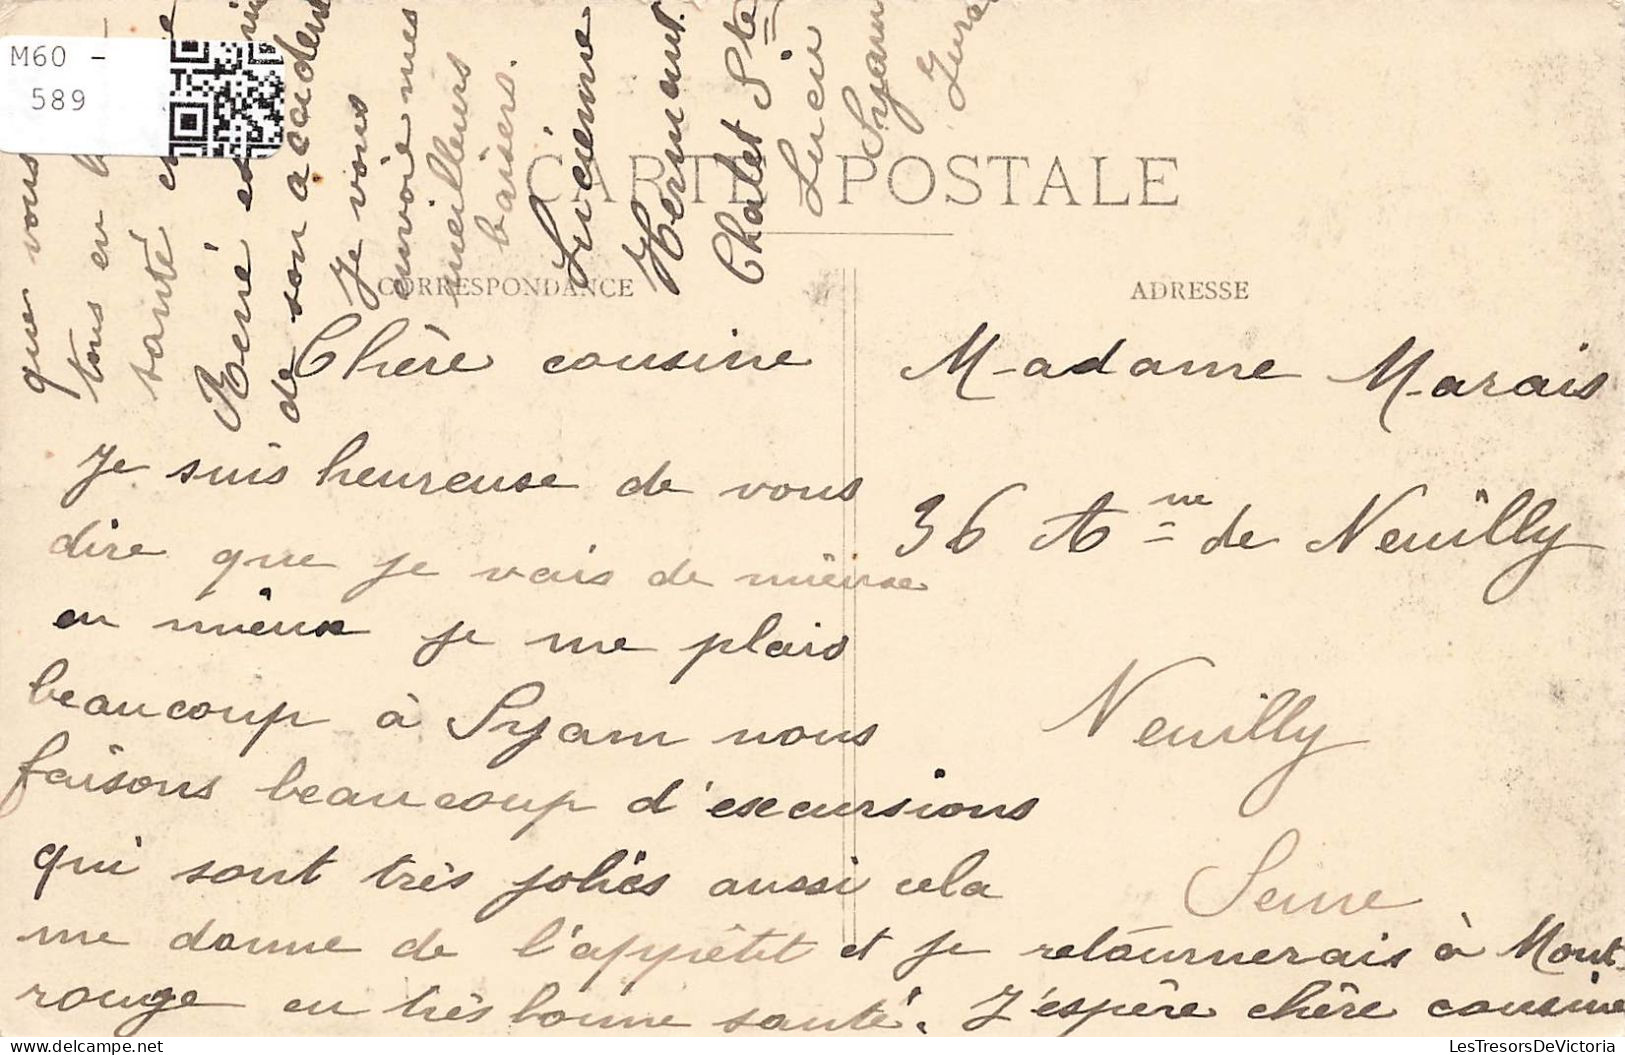 M60 -
589
CARTE POSTALE
CORRESPONDANCE
ADRESSE
Chère cousine
Je suis heureuse de vous
dire que je vais de mieux
en mieux je me plais
beaucoup à Syam nous
faisons beaucoup d'excursions
qui sont très jolies aussi cela
me donne de l'appétit et je retournerais à Mont-
rouge en très bonne santé. J'espère chère cousine
que vous
tous en
santé
René
de son accident
Je vous
envoie mes
meilleurs
baisers.
Lucienne
Hermant.
Chalet Ste
Lucie
Syam
Jura
Madame Marais
36 Ane de Neuilly
Neuilly
Seine
LesTresorsDeVictoria
www.delcampe.net